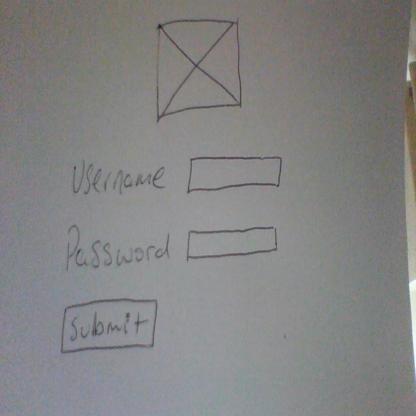 Username
Password
Submit